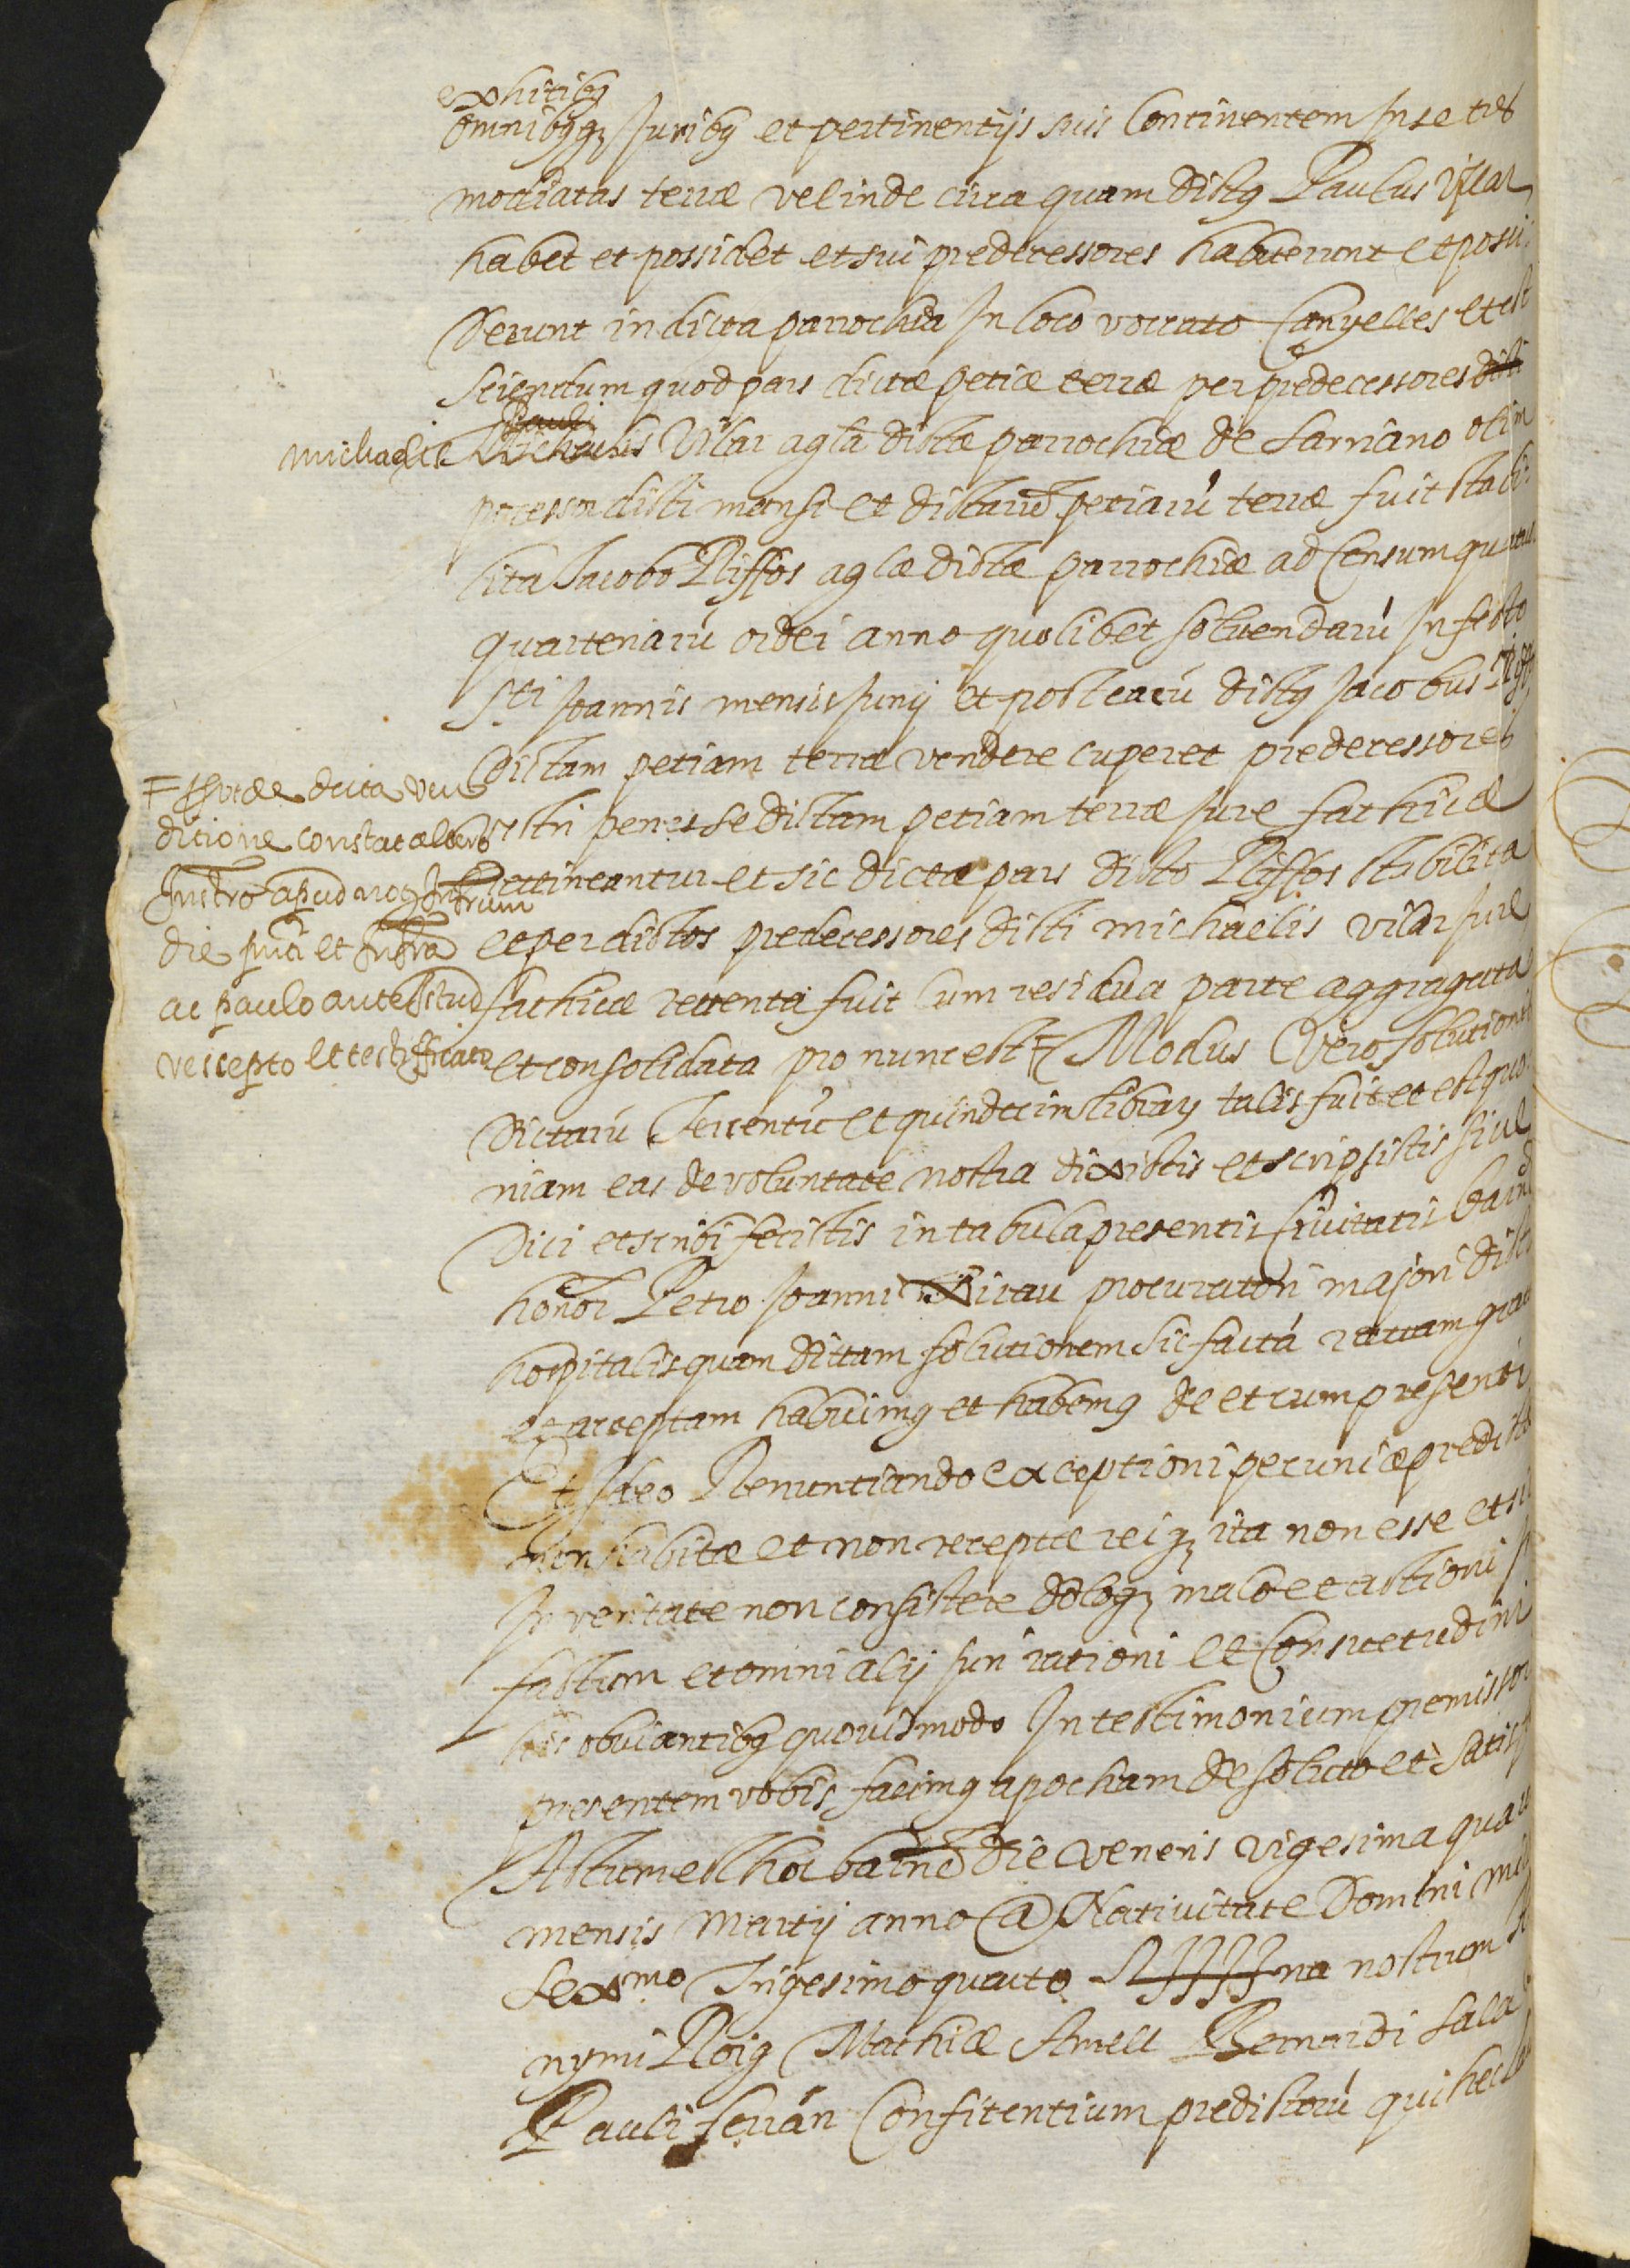 exhitibq
omnibqq Juribq et pertinentijs suis Continentem Jn se tres
modiatas terræ vel inde circa quam dictq Paulus Vilar
habet et possidet et sui predecessores habuerunt et possi:
derunt in dicta parrochia Jn loco vocato Canyelles et est
sciendum quod pars dictæ petiæ terræ per predecessores dicti
Pauli
michaelis Michaelis Vilar agla dictæ parrochiæ de Sarriano olim
possessor dicti mansi et dictarũ petiarú terræ fuit stabi:
lita Jacobo Riffos aglæ dictæ parrochiæ ad Censum quatuor
quarteriarú ordei anno quolibet solvendarú Jn festo
Sti Joannis mensis Junij et postea cú dictq Jacobus Riffos
dictam petiam terræ vendere cuperet predecessores
dicti penes se dictam petiam terræ Jure fathicæ
rettineantur et sic dictæ pars dicto Riffos stabilita
et per dictos predecessores dicti michaelis vilar Jure
fathicæ rettenta fuit Cum residua parte aggragata
et consolidata pro nunc est Modus Vero solutionis
dictarú Tercentú et quindecim librarq talis fuit et est quo:
niam eas de voluntate nostra dixistis et scripsistis sive
Dici et scribi fecistis in tabula presentis Civitatis barne
honor Petro Joanni Girau procuratori majori dicti
hospitalis quam dittam solutionem sic factá ratam gratam
et acceptam habuimq et habemq de et cum presenti
Et Jdeo Renuntiando exceptioni pecuniæ predictæ
non habitæ et non receptæ reiq ita non esse et sic
Jn veritate non consistere doloq malo et actioni Jn
factum et omni alij Juri rationi et Consuetudini
his obviantibq quovis modo Jn testimonium premissor
presentem vobis facimq apocham de soluto et satis
Actum est hoc barne die Veneris vigesima quarta
mensis Martij anno a Nativitate Domini mill
Sexmo Trigesimo quarto SJJJJna nostrum
nymi Roig Mathiæ Amell Bernardi Sala
Pauli ferrán Confitentium predictorú qui hec
ditione constat
Jnstro apud noq Jnfrum
die put et Jnfra
ac paulo ante Jstud
rescepto et testifficato